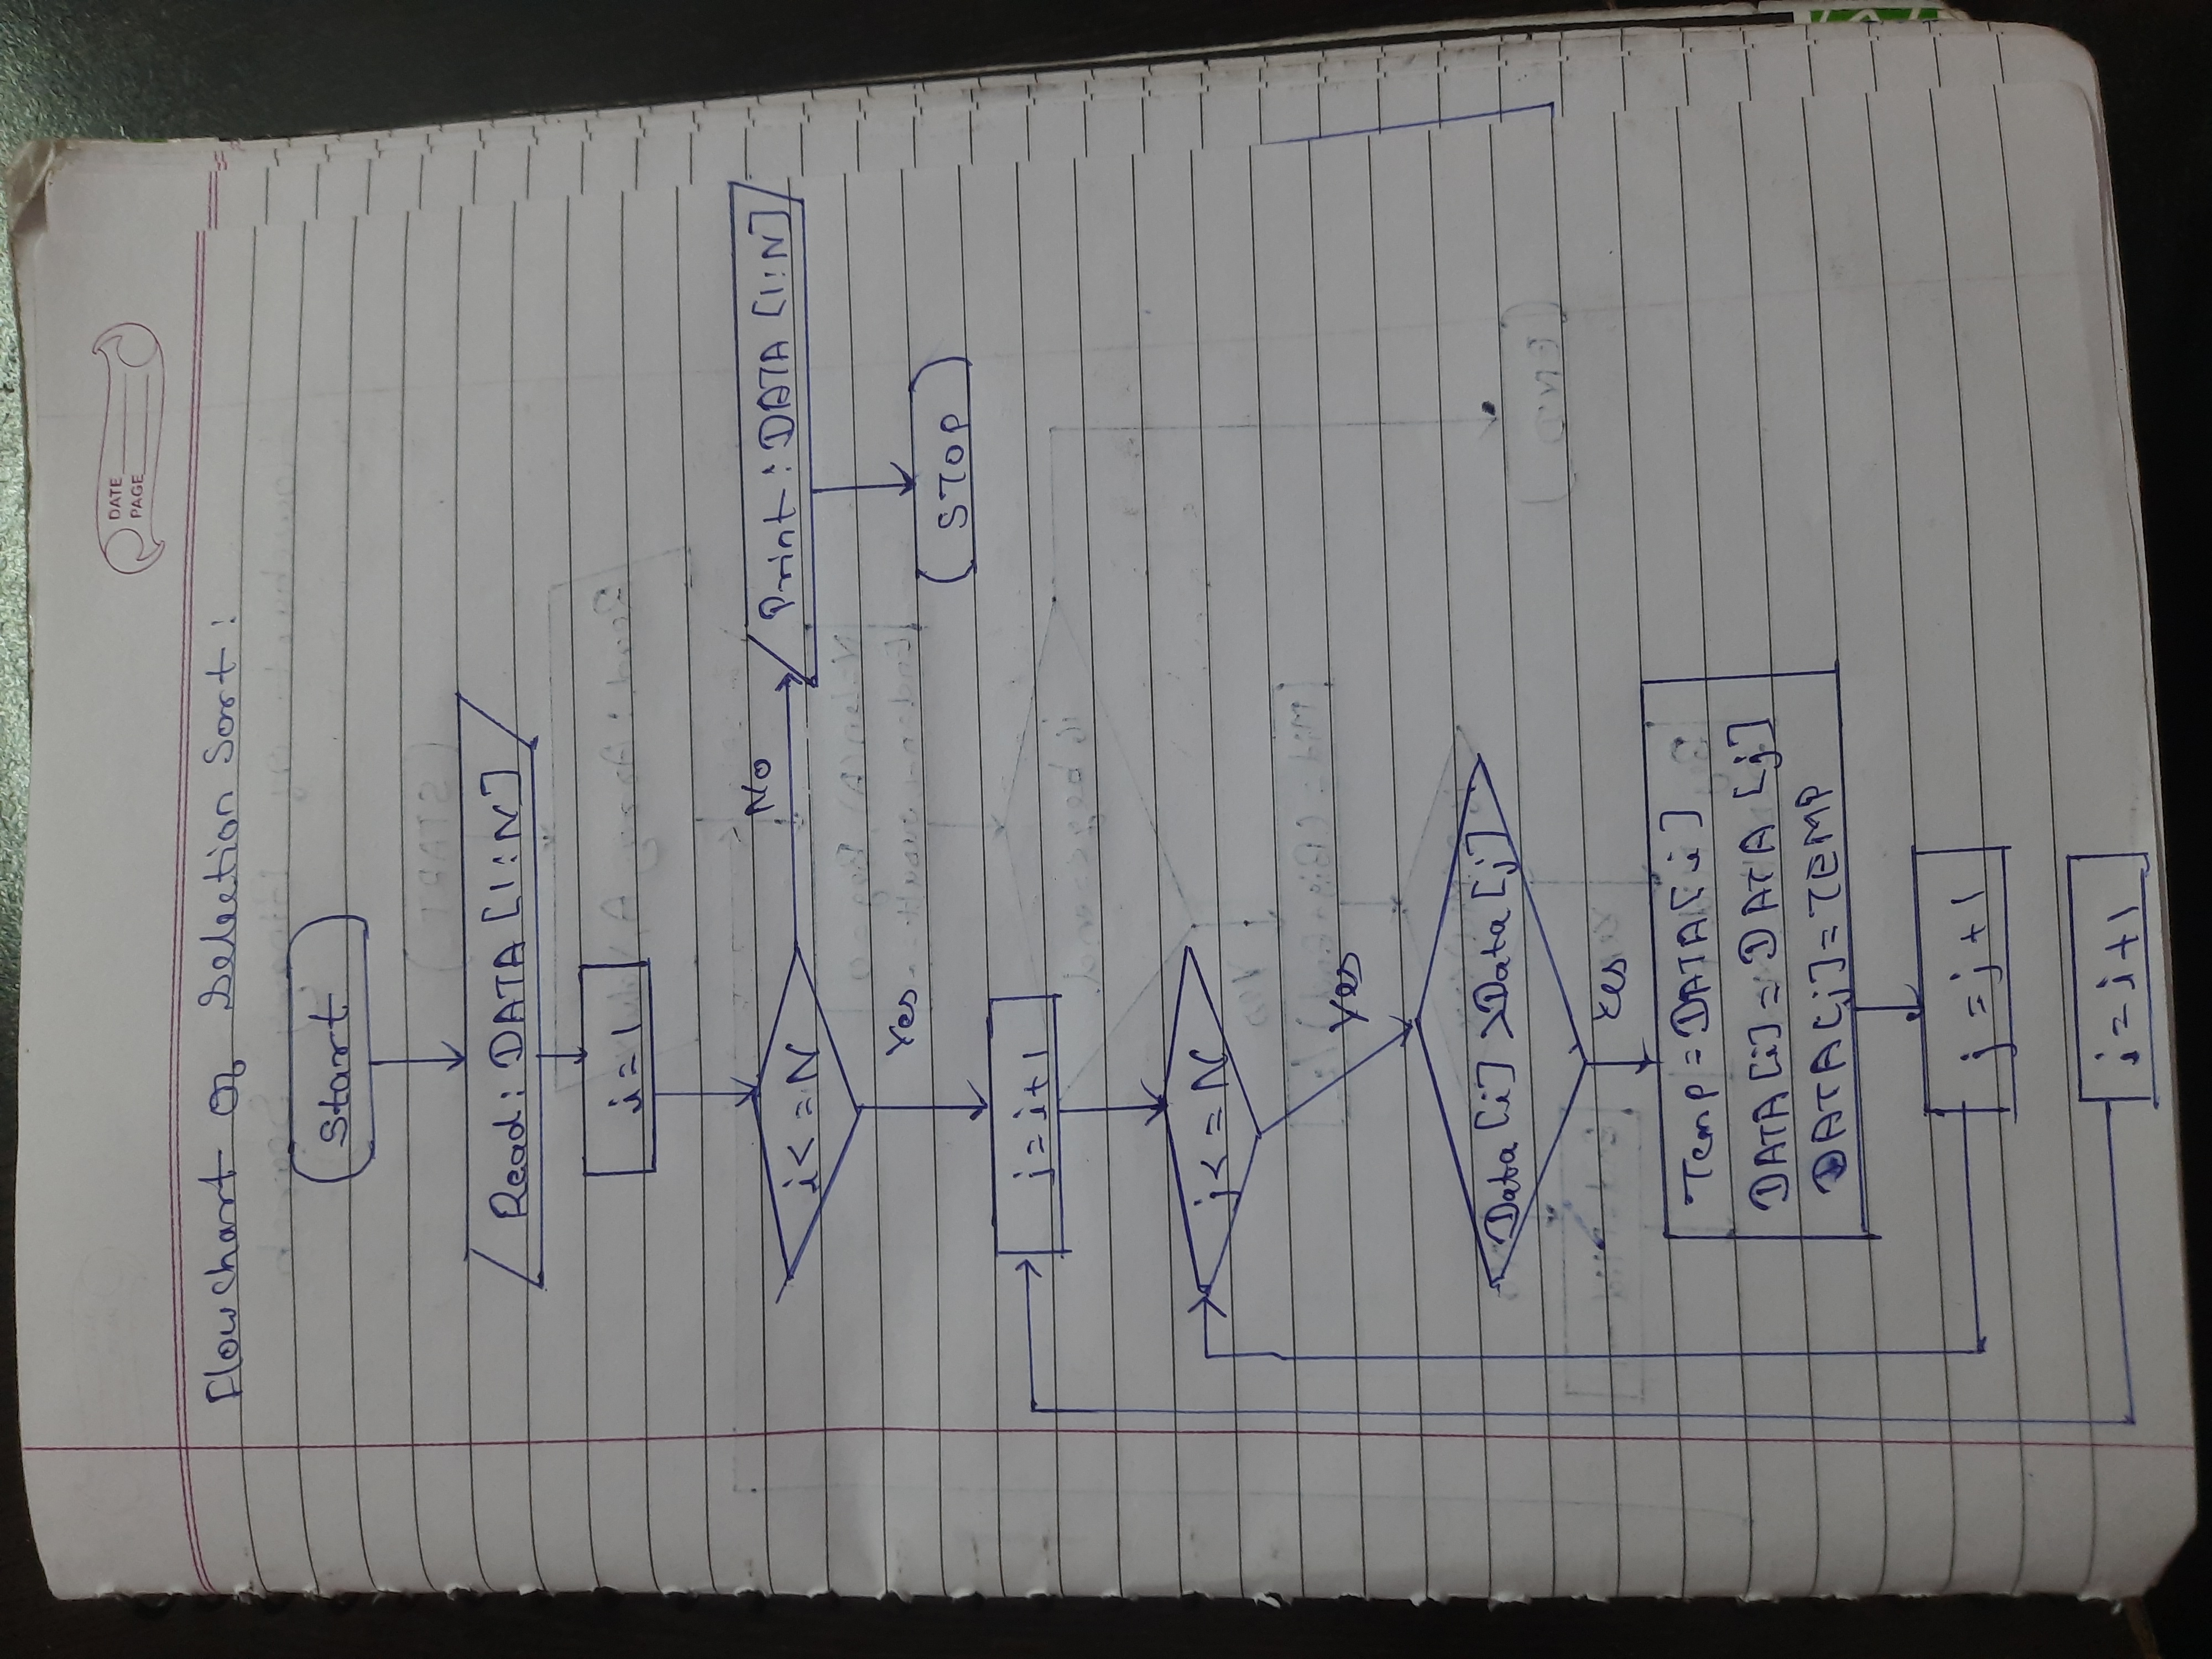 DATE
PAGE
Flowchart of Selection Sort:
Start
Read: DATA [1:N]
i=1
i<=N
No
Print: DATA [1:N]
Yes
STOP
j=i+1
j<=N
Yes
Data [i] >Data [j]
Yes
Temp=DATA[i]
DATA[i]=DATA [j]
DATA[j]=TEMP
j=j+1
i=i+1